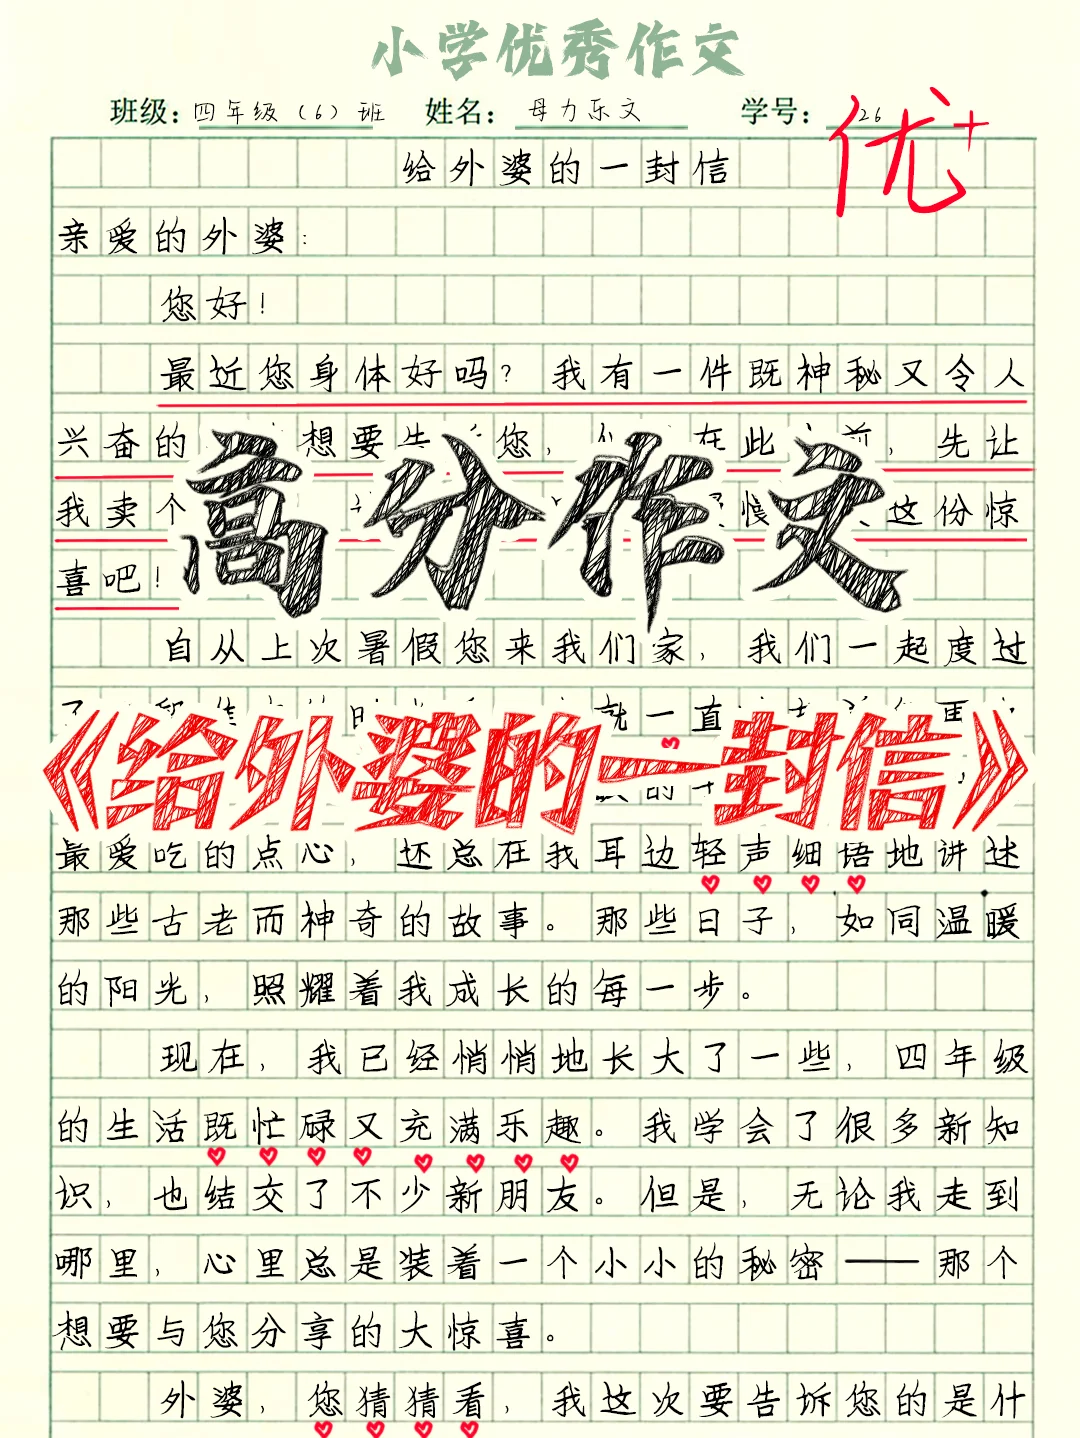 小学优秀作文
班级：四年级（6）班 姓名：母力乐文 学号：26
优+
给外婆的一封信
亲爱的外婆：
您好！
最近您身体好吗？我有一件既神秘又令人
兴奋的 想要 您， 在此 前，先让
我卖个 慢 这份惊
喜吧！
高分作文
自从上次暑假您来我们家，我们一起度过
就一直
《给外婆的一封信》
最爱吃的点心，还总在我耳边轻声细语地讲述
那些古老而神奇的故事。那些日子，如同温暖
的阳光，照耀着我成长的每一步。
现在，我已经悄悄地长大了一些，四年级
的生活既忙碌又充满乐趣。我学会了很多新知
识，也结交了不少新朋友。但是，无论我走到
哪里，心里总是装着一个小小的秘密——那个
想要与您分享的大惊喜。
外婆，您猜猜看，我这次要告诉您的是什